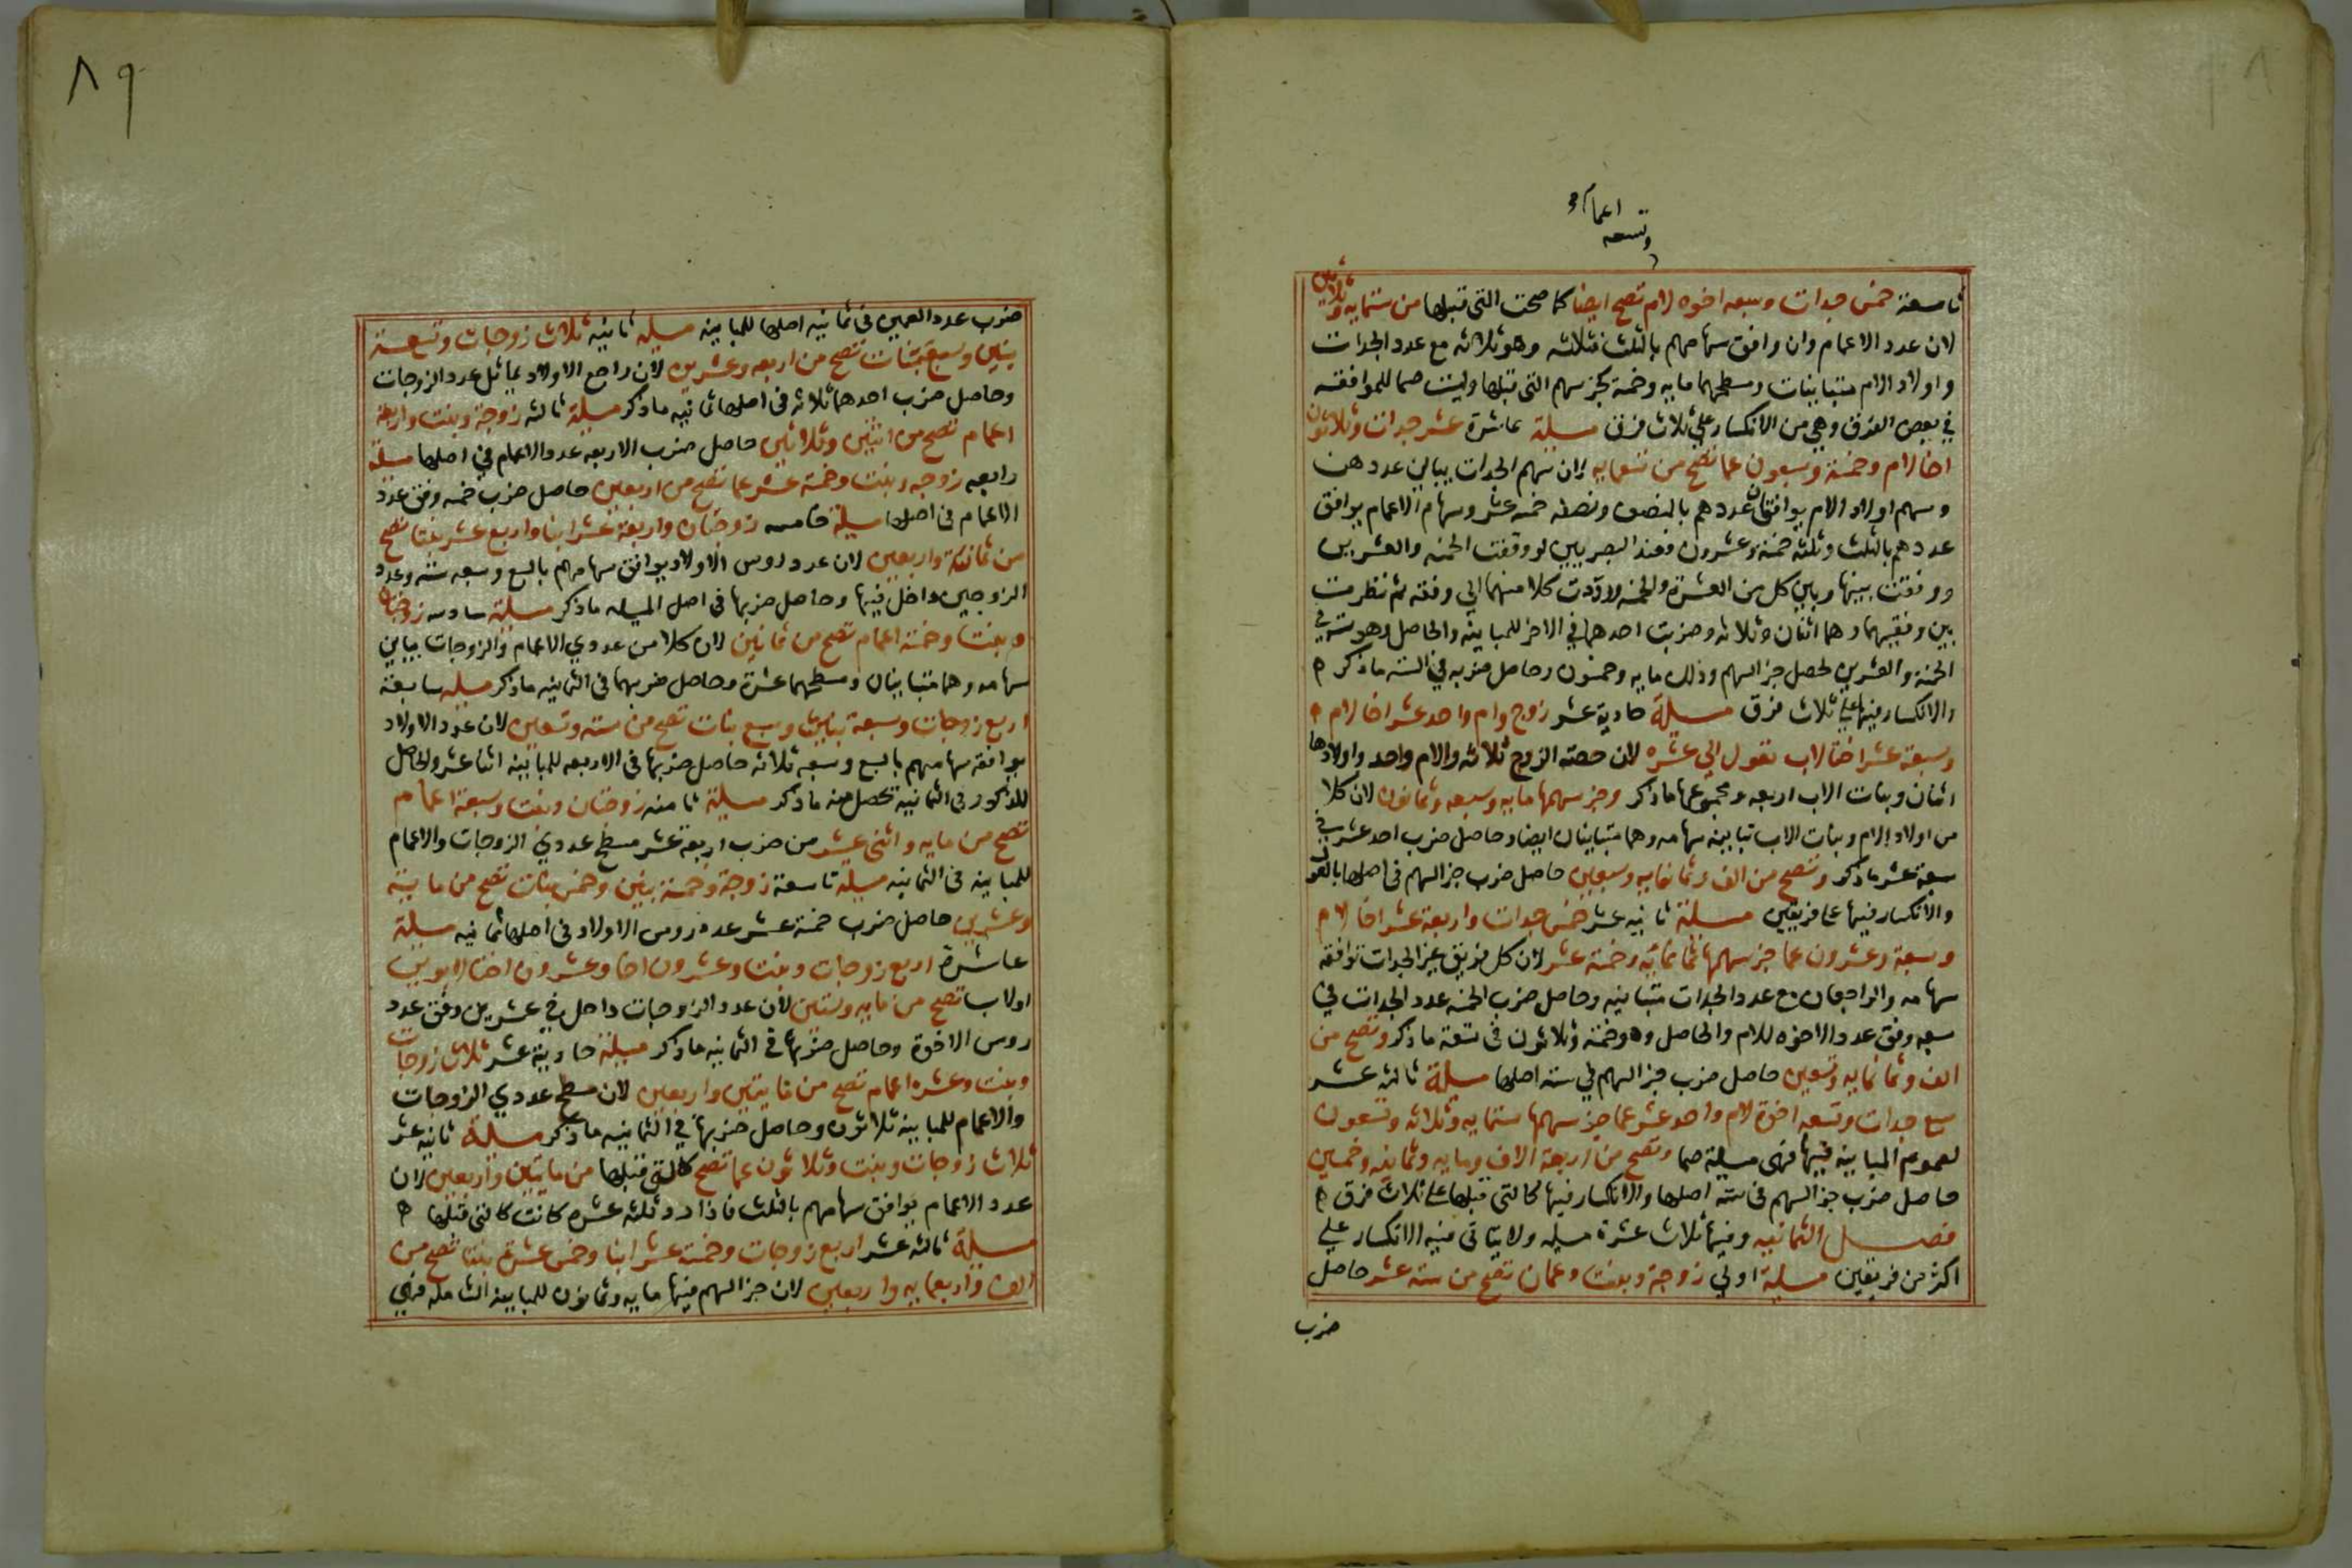 وتسعه
اعمام
تاسعة خمس جدات وسبعه اخوه لام تصح ايضا كما صحت التى قبلها من ستمايه وثلاثين
لان عدد الاعمام وان وافق سهامهم بالثلث فثلثه وهو ثلاثه مع عدد الجدات
واولاد الام متباينات ومسطحهما مايه وخمسة كجز سهم التى قبلها وليست صما للموافقه
في بعض الفرق وهي من الانكسار علي ثلاث فرق مسيلة عاشرة عشر جدات وثلاثون
اخا لام وخمسة وسبعون عما تصح من تسعمايه لان سهم الجدات يباين عددهن
وسهم اولاد الام يوافقان عددهم بالنصف ونصفه خمسه عشر وسهام الاعمام يوافق
عددهم بالثلث وثلثه خمسة وعشرون فعند البصريين لو وقفت الخمسه والعشرين
ووفقت بينها وبين كل من العشرة والخمسه لرددت كلا منهما الي وفقه ثم نظرت
بين وفقيهما وهما اثنان وثلاثه وضربت احدهما في الاخر للمباينه والحاصل وهو سته في
الخمسة والعشرين لحصل جز السهم وذلك مايه وخمسون وحاصل ضربه في السته ماذكر ه
والانكسار فيها علي ثلاث فرق مسيلة حادية عشر زوج وام واحد عشر اخا لام
وسبعة عشر اختا لاب تعول الي عشره لان حصة الزوج ثلاثه والام واحد واولادها
اثنان وبنات الاب اربعه ومجموعها ماذكر وجز سهمها مايه وسبعه وثمانون لان كلا
من اولاد الام وبنات الاب تباينه سهامه وهما متباينان ايضا وحاصل ضرب احد عشر في
سبعة عشر ماذكر وتصح من الف وثمانمايه وسبعين حاصل ضرب جز السهم في اصلها بالعول
والانكسار فيها علي فريقين مسيلة ثانيه عشر خمس جدات واربعة عشر اخا لام
وسبعة وعشرون عما جز سهمها ثلثمائه وخمسة عشر لان كل فريق غير الجدات توافقه
سهامه والراجعان مع عدد الجدات متباينه وحاصل ضرب الخمسه عدد الجدات في
سبعه وفق عدد الاخوه للام والحاصل وهو خمسة وثلاثون في تسعة ماذكر وتصح من
الف وثمانمايه وتسعين حاصل ضرب جز السهم في سته اصلها مسيلة ثالثه عشر
سبع جدات وتسعه اخوة لام واحد عشر عما جز سهمها ستمايه وثلاثه وتسعون
لعموم المباينه فيها فهى مسيلة صما وتصح من اربعة الاف ومايه وثمانيه وخمسين
حاصل ضرب جز السهم فى سته اصلها والانكسار فيها كالتى قبلها علي ثلاث فرق ه
فصل الثمانيه وفيها ثلاث عشرة مسيله ولا يتاتى فيه الانكسار علي
اكثر من فريقين مسيلة اولي زوجة وبنت وعمان تصح من سته عشر حاصل
ضرب
٨٩
ضرب عدد العمين فى ثمانيه اصلها للمباينه مسيله ثانيه ثلاث زوجات وتسعة
بنين وسبع بنات تصح من اربعه وعشرين لان راجع الاولاد يماثل عدد الزوجات
وحاصل ضرب احدهما ثلاثه فى اصلها ثمانيه ماذكر مسيلة ثالثه زوجة وبنت واربعة
اعمام تصح من اثنين وثلاثين حاصل ضرب الاربعه عدد الاعمام في اصلها مسيلة
رابعه زوجه وبنت وخمسة عشر عما تصح من اربعين حاصل ضرب خمسه وفق عدد
الاعمام فى اصلها مسيلة خامسه زوجتان واربعة عشر ابنا واربع عشر بنتا تصح
من ثمانية واربعين لان عدد روس الاولاد يوافق سهامهم بالسبع وسبعه سته وعدد
الزوجين داخل فيها وحاصل ضربها فى اصل المسيله ماذكر مسيلة سادسه زوجتان
وبنت وخمسة اعمام تصح من ثمانين لان كلا من عددي الاعمام والزوجات يباين
سهامه وهما متباينان ومسطحهما عشرة وحاصل ضربهما فى الثمانيه ماذكر مسيله سابعة
اربع زوجات وسبعة بنين وسبع بنات تصح من سته وتسعين لان عدد الاولاد
يوافقه سهامهم بالسبع وسبعه ثلاثه حاصل ضربها فى الاربعه للمباينه اثنا عشر والحاصل
للمذكور فى الثمانية تحصل منه ماذكر مسيلة ثامنه زوجتان وبنت وسبعة اعمام
تصح من مايه واثنى عشر من ضرب اربعة عشر مسطح عددي الزوجات والاعمام
للمباينه فى الثمانيه مسيلة تاسعة زوجة وخمسة بنين وخمس بنات تصح من مايه
وعشرين حاصل ضرب خمسة عشر عدد روس الاولاد فى اصلها ثمانيه مسيلة
عاشرة اربع زوجات وبنت وعشرون اخا وعشرون اختا لابوين
اولاب تصح من مايه وستين لان عدد الزوجات داخل في عشرين وفق عدد
روس الاخوة وحاصل ضربها في الثمانيه ماذكر مسيلة حادية عشر ثلاث زوجات
وبنت وعشره اعمام تصح من مايتين واربعين لان مسطح عددي الزوجات
والاعمام للمباينه ثلاثون وحاصل ضربها في الثمانيه ماذكر مسيلة ثانيه عشر
ثلاث زوجات وبنت وثلاثون عما تصح كالتى قبلها من مايتين واربعين لان
عدد الاعمام يوافق سهامهم بالثلث فاذا رد ثلثه عشره كانت كالتى قبلها ه
مسيلة ثالثه عشر اربع زوجات وخمسة عشر ابنا وخمس عشرة بنتا تصح من
الف واربعمايه واربعين لان جز السهم فيها مايه وثمانون للمباينه الشامله فهي